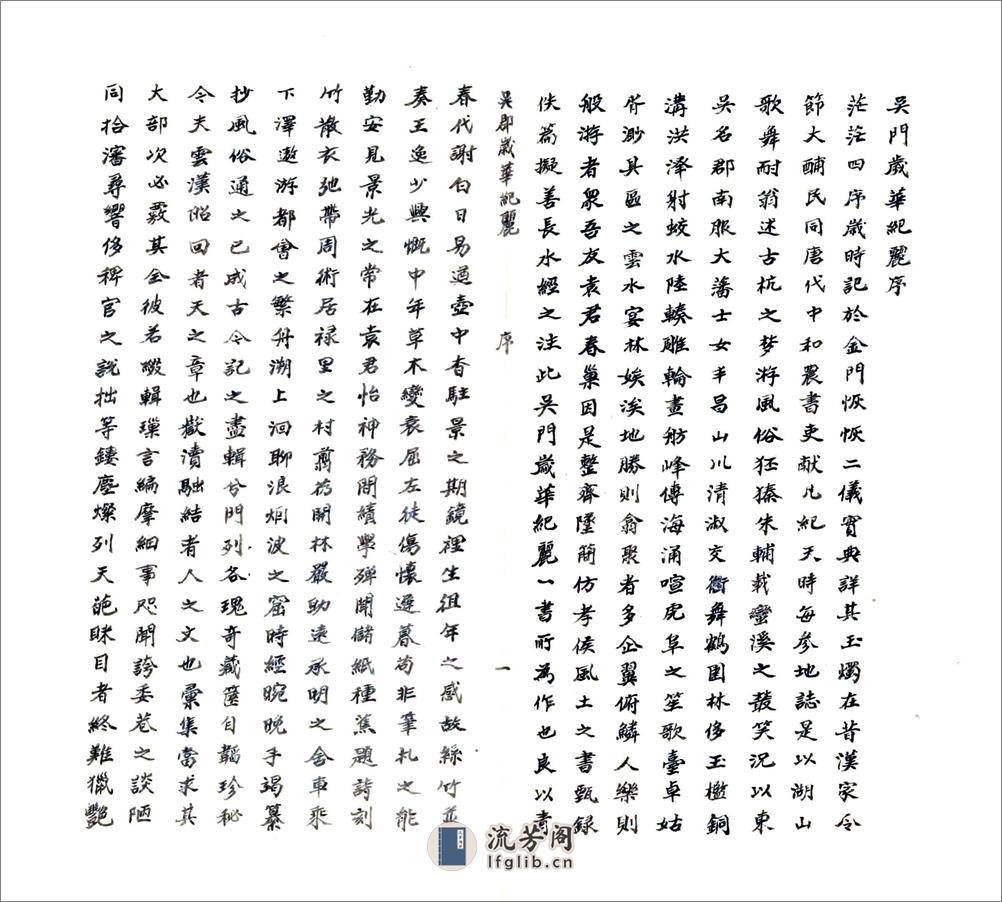 吳門歲華紀麗序
茫茫四序歲時記於金門恢恢二儀寶典詳其玉燭在昔漢家令
節大酺民同唐代中和農書吏献凡紀天時每參地誌是以湖山
歌舞耐翁述古杭之梦游風俗狂獉朱輔載蠻溪之䕺笑況以東
吳名郡南服大藩士女丰昌山川清淑交衢舞鶴園林侈玉檻銅
溝洪泽射蛟水陸輳雕輪畫舫峰傳海涌喧虎阜之笙歌臺卓姑
胥渺具區之雲水宴林娭溪地勝則翕聚者多企翼俯鱗人樂則
般游者衆吾友袁君春巢因是整齊墜簡仿孝侯風土之書甄録
佚篇擬善長水經之注此吳門歲華紀麗一書所為作也良以青
吳郡歲華紀麗 序 一
春代謝白日易過壺中杳駐景之期鏡裡生徂年之感故絲竹並
奏王逸少興慨中年草木變衰屈左徒傷懷遲暮苟非筆札之能
勤安見景光之常在袁君怡神務閒績學殫聞儲紙種蕉題詩刻
竹散衣弛帶周術居禄里之村剪荷開林嚴助遠承明之舍車乘
下澤遨游都會之繁舟溯上洄聊浪烟波之窟時經晼晚手竭纂
抄風俗通之已成古今記之盡輯分門列各瑰奇藏篋自韜珍秘
今夫雲漢昭回者天之章也嶽瀆融結者人之文也彙集當求其
大部次必覈其全彼若掇輯璅言編摩細事咫聞誇委巷之談陋
同拾瀋尋響侈稗官之説拙等鏤塵燦列天葩眯目者終難獵艷
流芳阁
lfglib.cn